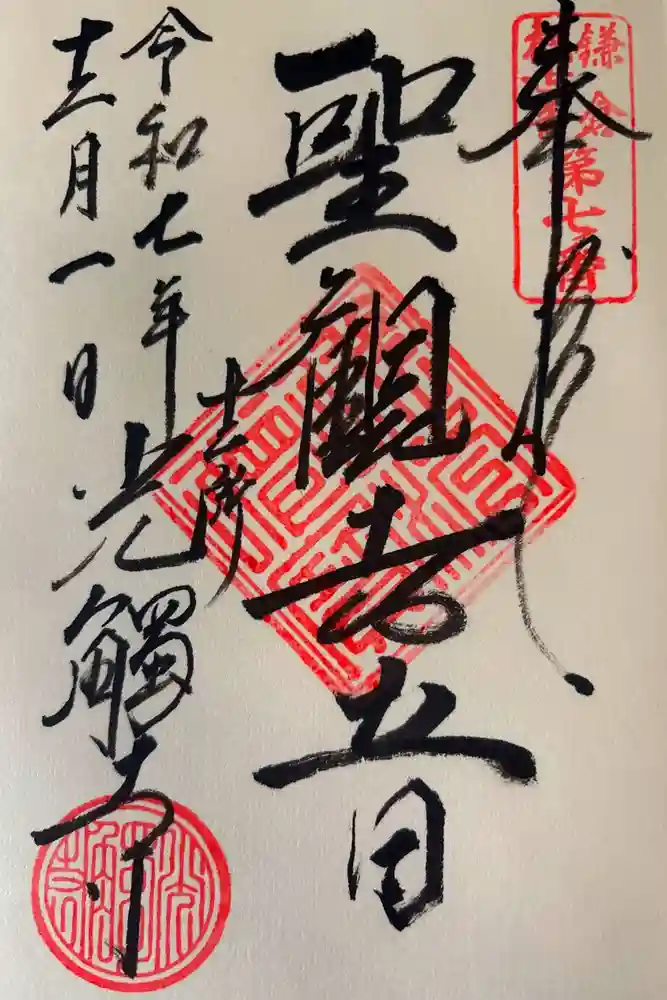 鎌倉
第七番
奉拝
聖観世音
令和七年
十二月一日
十二所
光觸寺